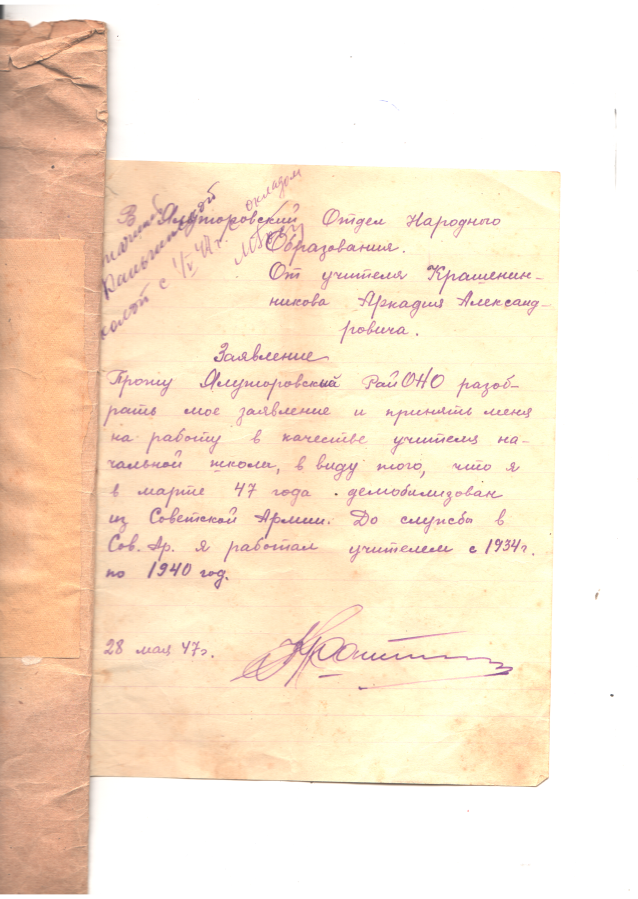 В Ялуторовский Отдел Народного
Образования.
От учителя Крашенин-
никова Аркадия Александ-
ровича.
Заявление
Прошу Ялуторовский РайОНО разоб-
рать мое заявление и принять меня
на работу в качестве учителя на-
чальной школы, в виду того, что я
в марте 47 года демобилизован
из Советской Армии. До службы в
Сов. Ар. я работал учителем с 1934г.
по 1940 год.
28 мая 47г.
школой с 1/V 47 г. окладом